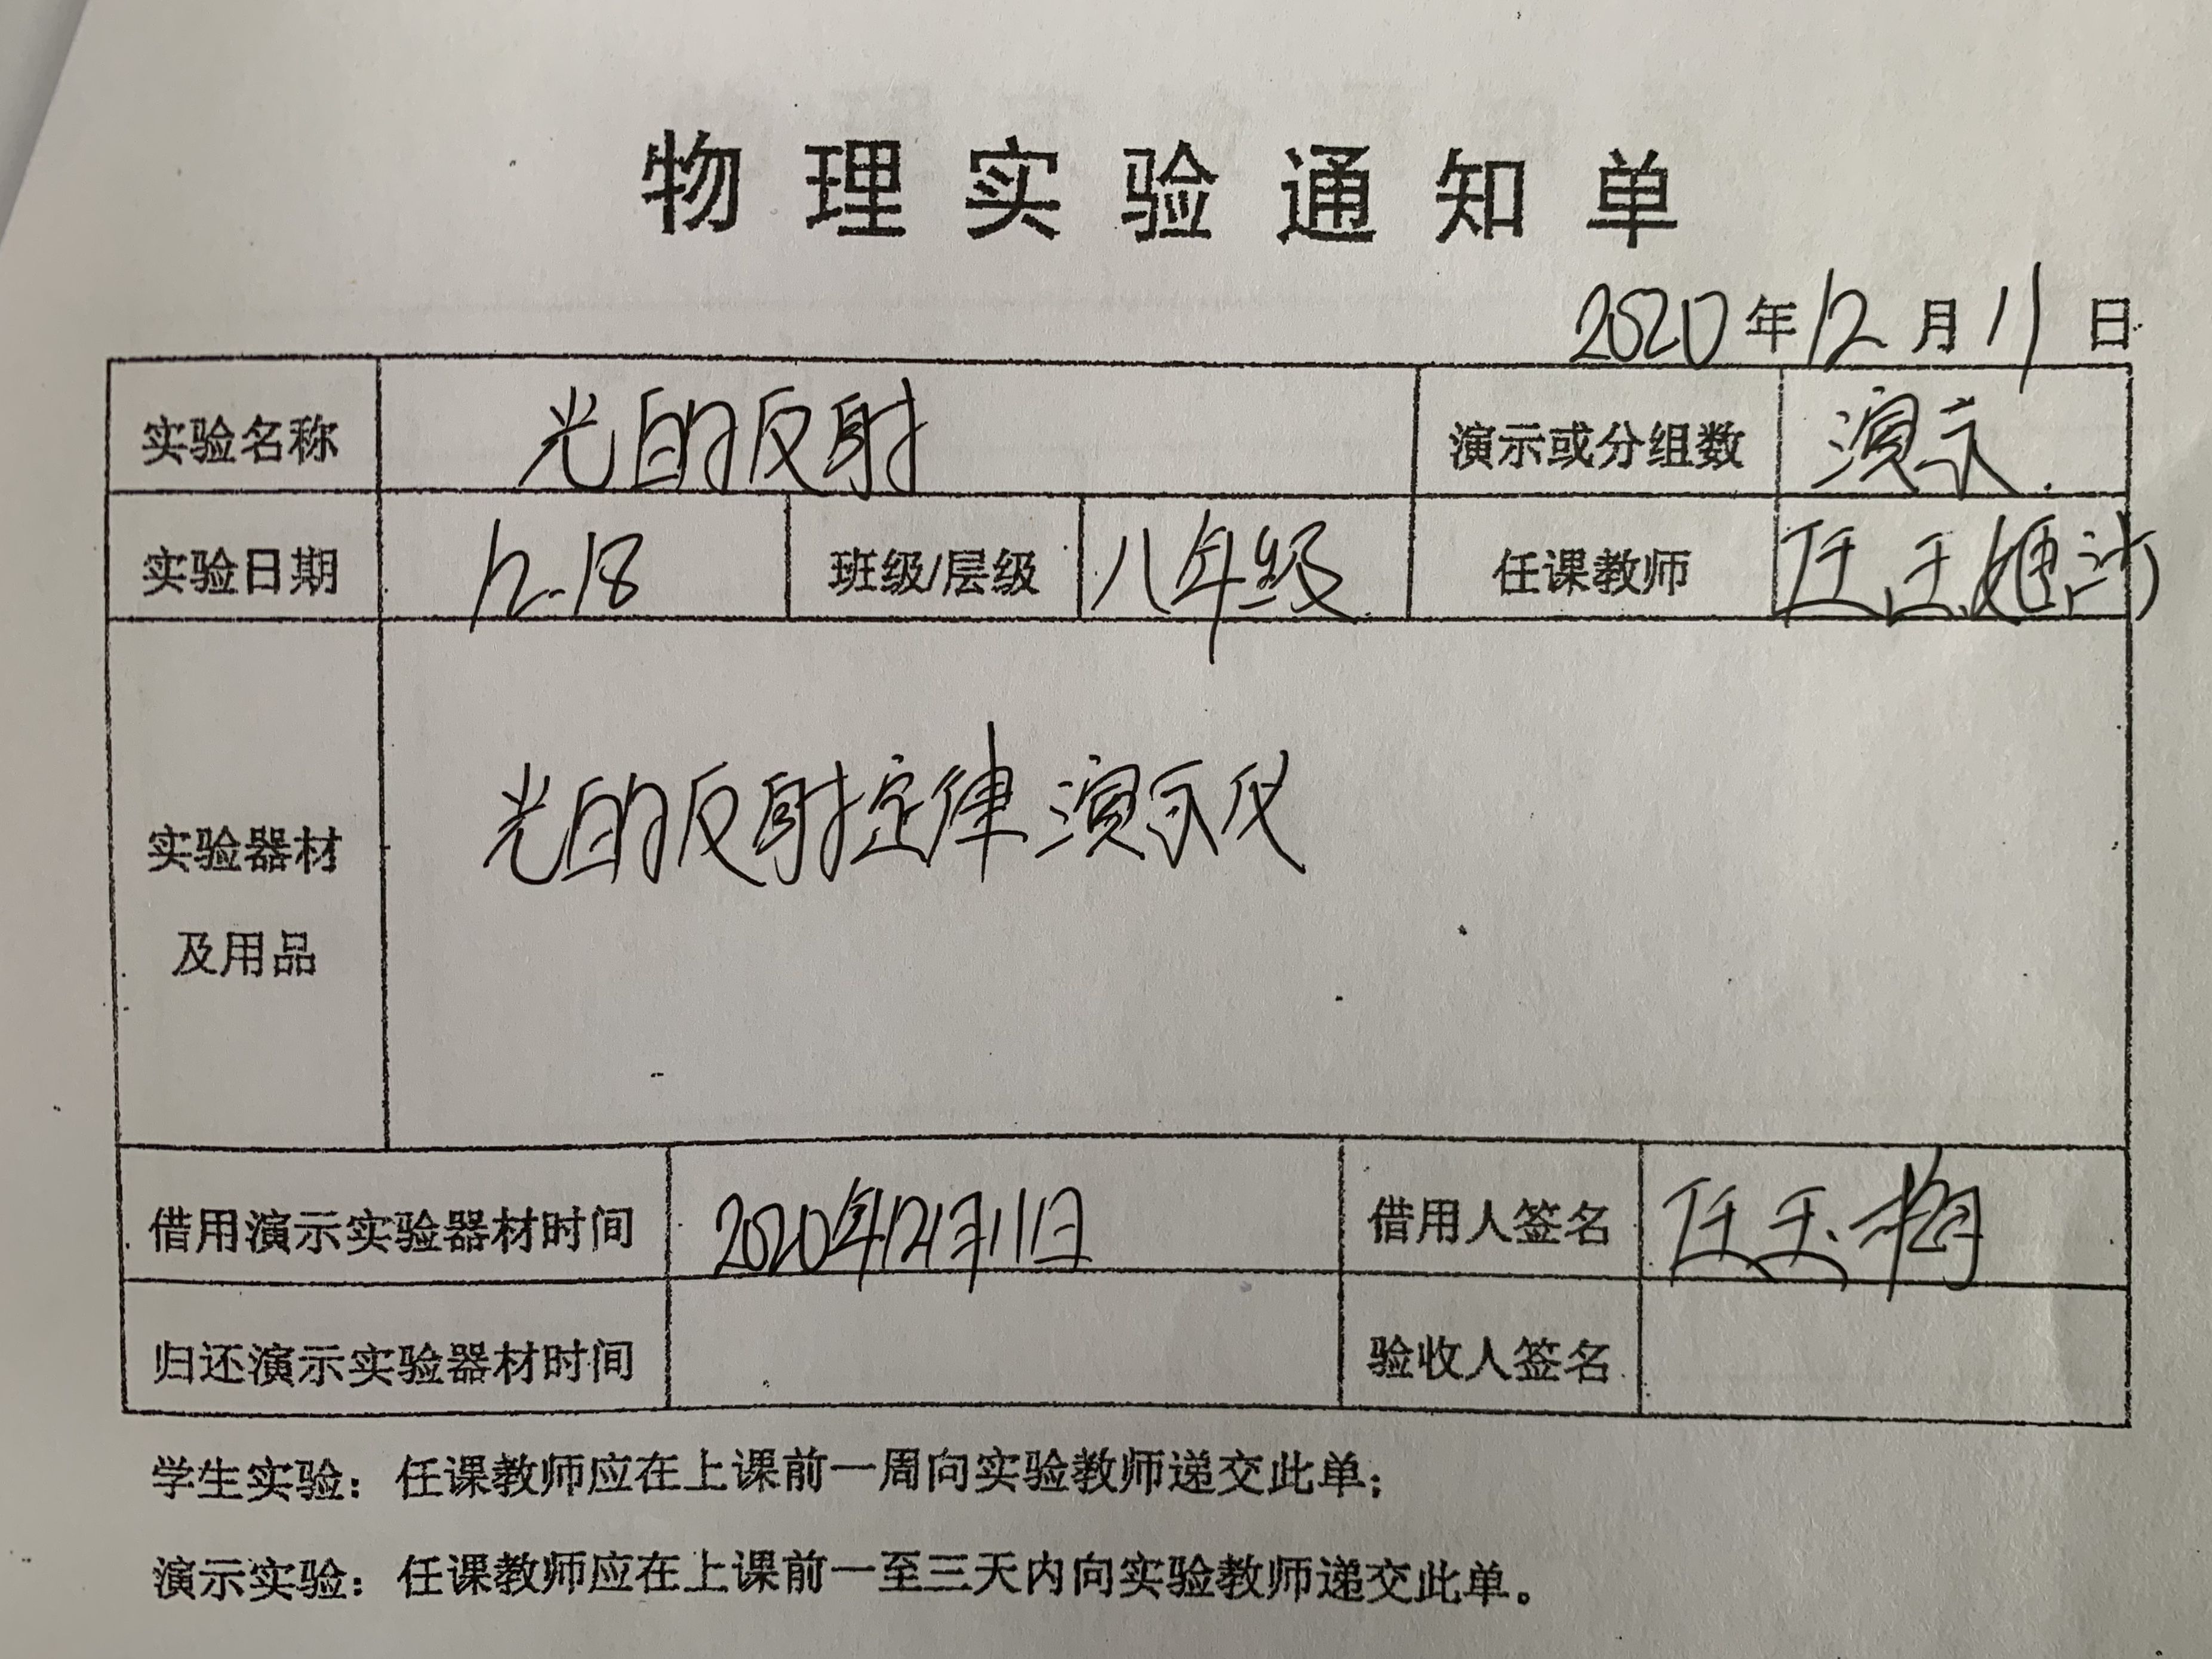 物理实验通知单
2020年12月11日
实验名称 光的反射 演示或分组数 演示.
实验日期 12.18 班级/层级 八年级 任课教师 任玉
实验器材及用品 光的反射定律演示仪
借用演示实验器材时间 2020年12月11日 借用人签名 任玉梅
归还演示实验器材时间 验收人签名
学生实验：任课教师应在上课前一周向实验教师递交此单；
演示实验：任课教师应在上课前一至三天内向实验教师递交此单。